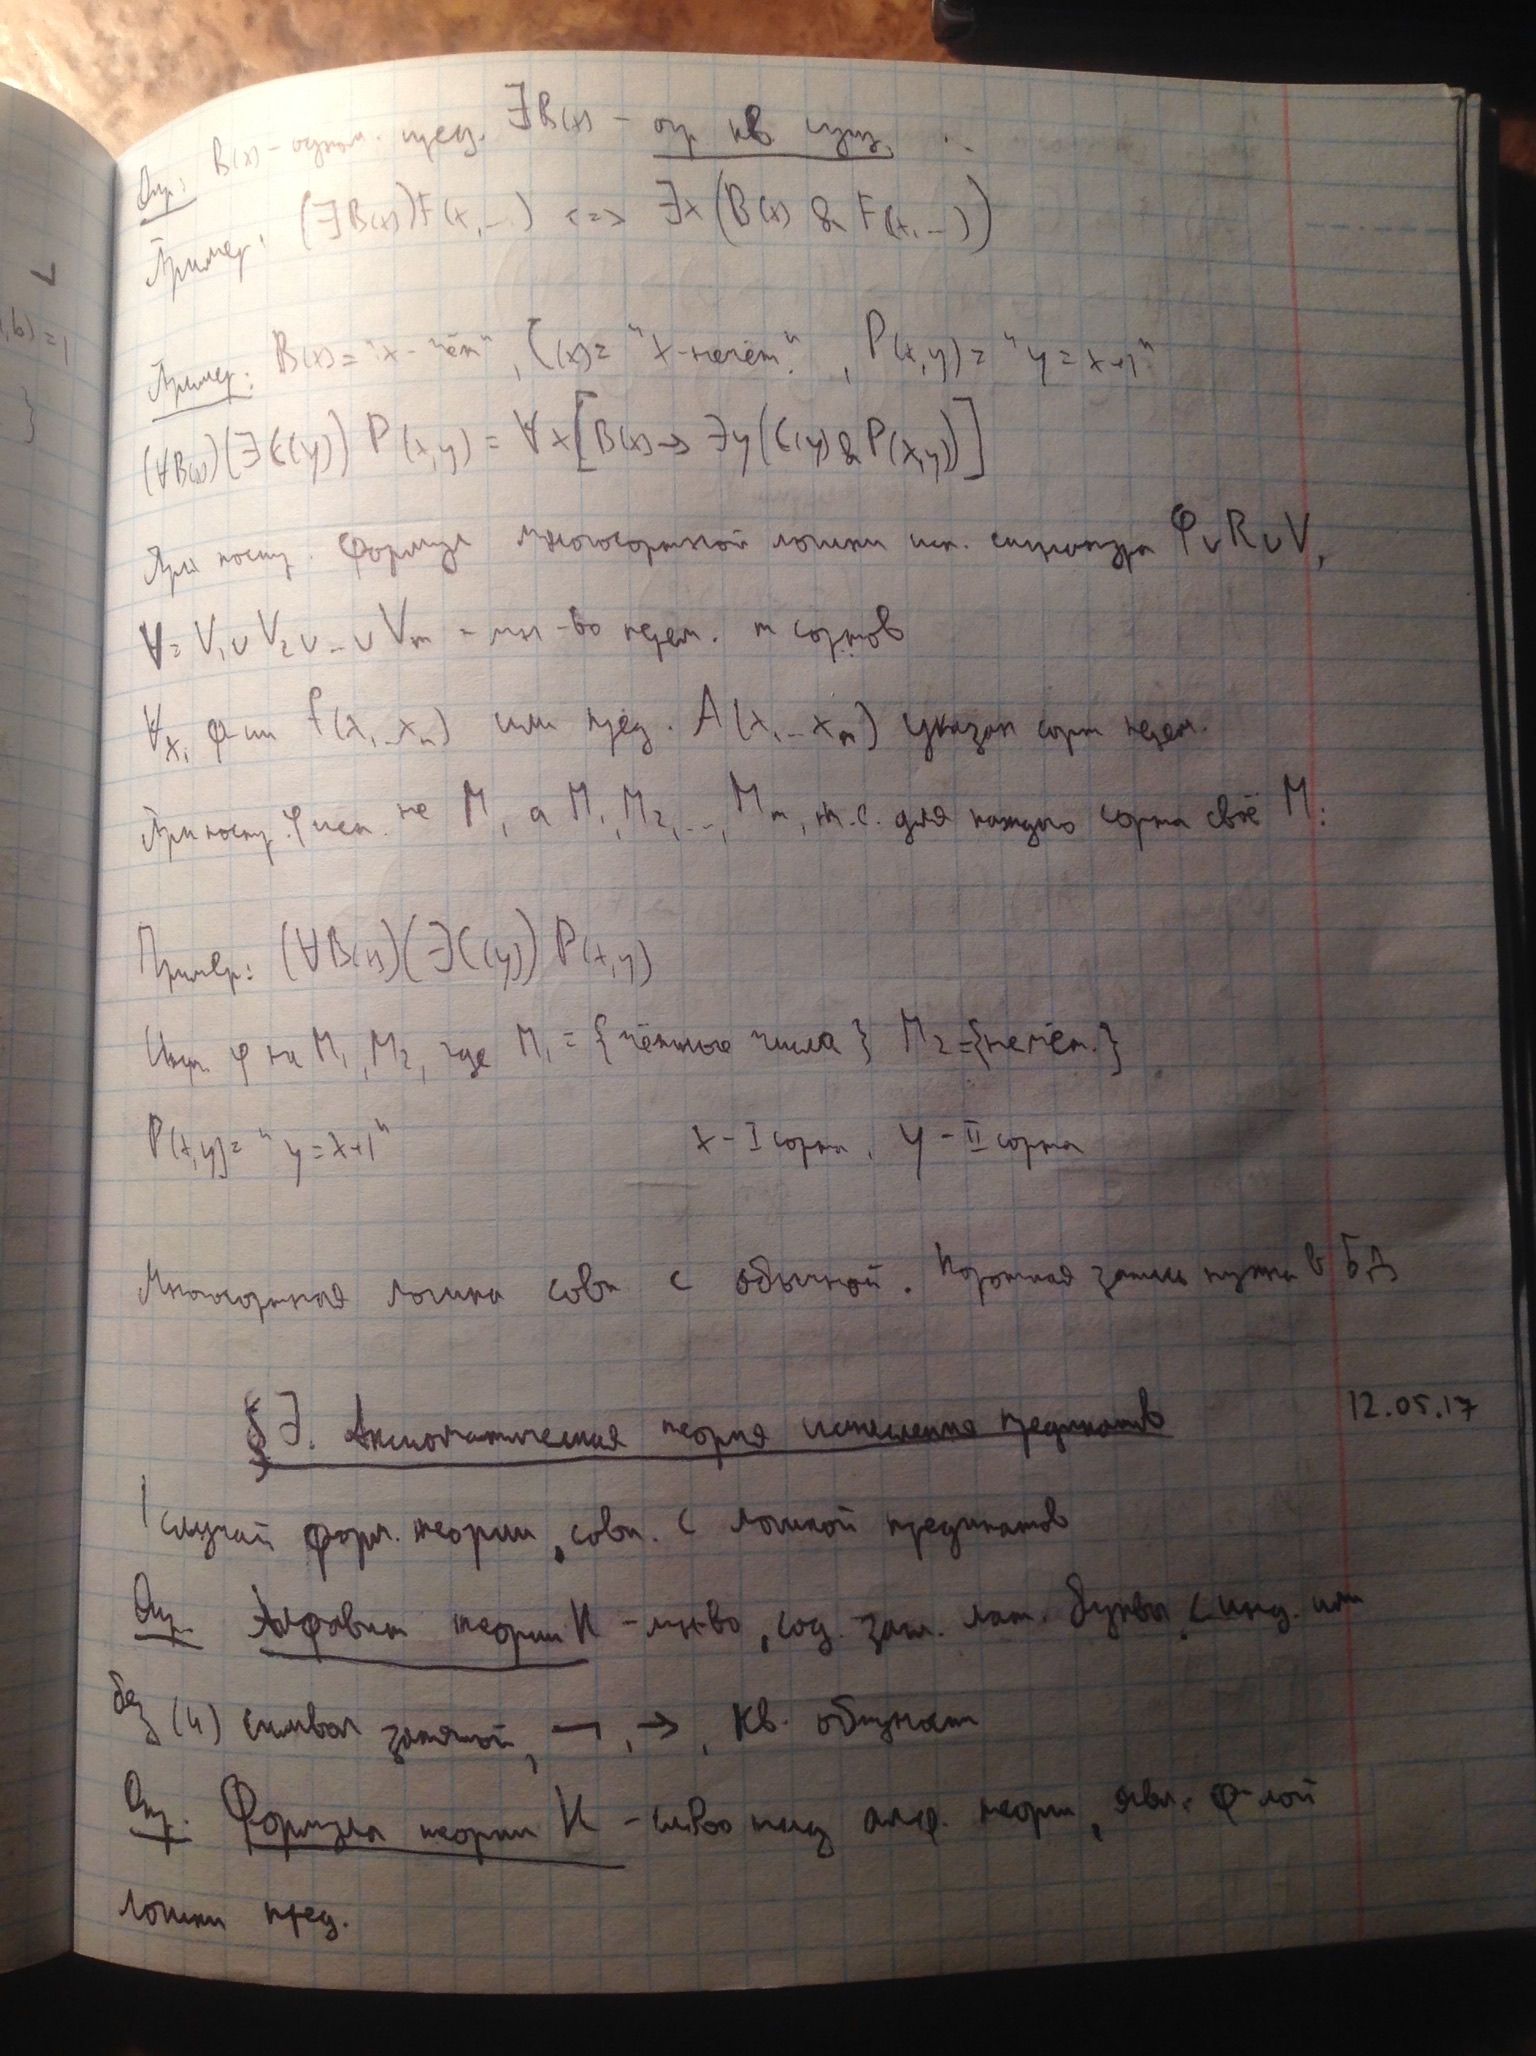 Опр: B(x) - одном. пред. ∃B(x) - огр кв. сущ.
Пример: (∃B(x))F(x,...) <=> ∃x(B(x) & F(x,...))
Пример: B(x)= "x - чёт", C(x)= "x - нечёт.", P(x,y)= "y = x+1"
(∀B(x))(∃C(y)) P(x,y) = ∀x[B(x) → ∃y(C(y) & P(x,y))]
При постр. формул многосортной логики исп. сигнатура φ∪R∪V,
V= V₁∪V₂∪...∪Vm - мн-во перем. m сортов
∀xᵢ ф-ии f(x₁...xₙ) или пред. A(x₁...xₙ) указан сорт перем.
При постр. φ исп. не M, а M₁, M₂, ..., Mm, т.е. для каждого сорта своё M:
Пример: (∀B(x))(∃C(y)) P(x,y)
Инт. φ на M₁, M₂, где M₁ = {чётные числа} M₂={нечёт.}
P(x,y)= "y = x+1" x - I сорта, y - II сорта
Многосортная логика совп с обычной. Короткая запись нужна в БД
12.05.17
§ 7. Аксиоматическая теория исчисления предикатов
1 случай форм. теории, совп. с логикой предикатов
Опр. Алфавит теории K - мн-во, сод. загл. лат. буквы с инд. или
без (и) символ запятой, ¬, →, кв. общности
Опр. Формула теории K - слово над алф. теории, явл. ф-лой
логики пред.
,b) = 1
}